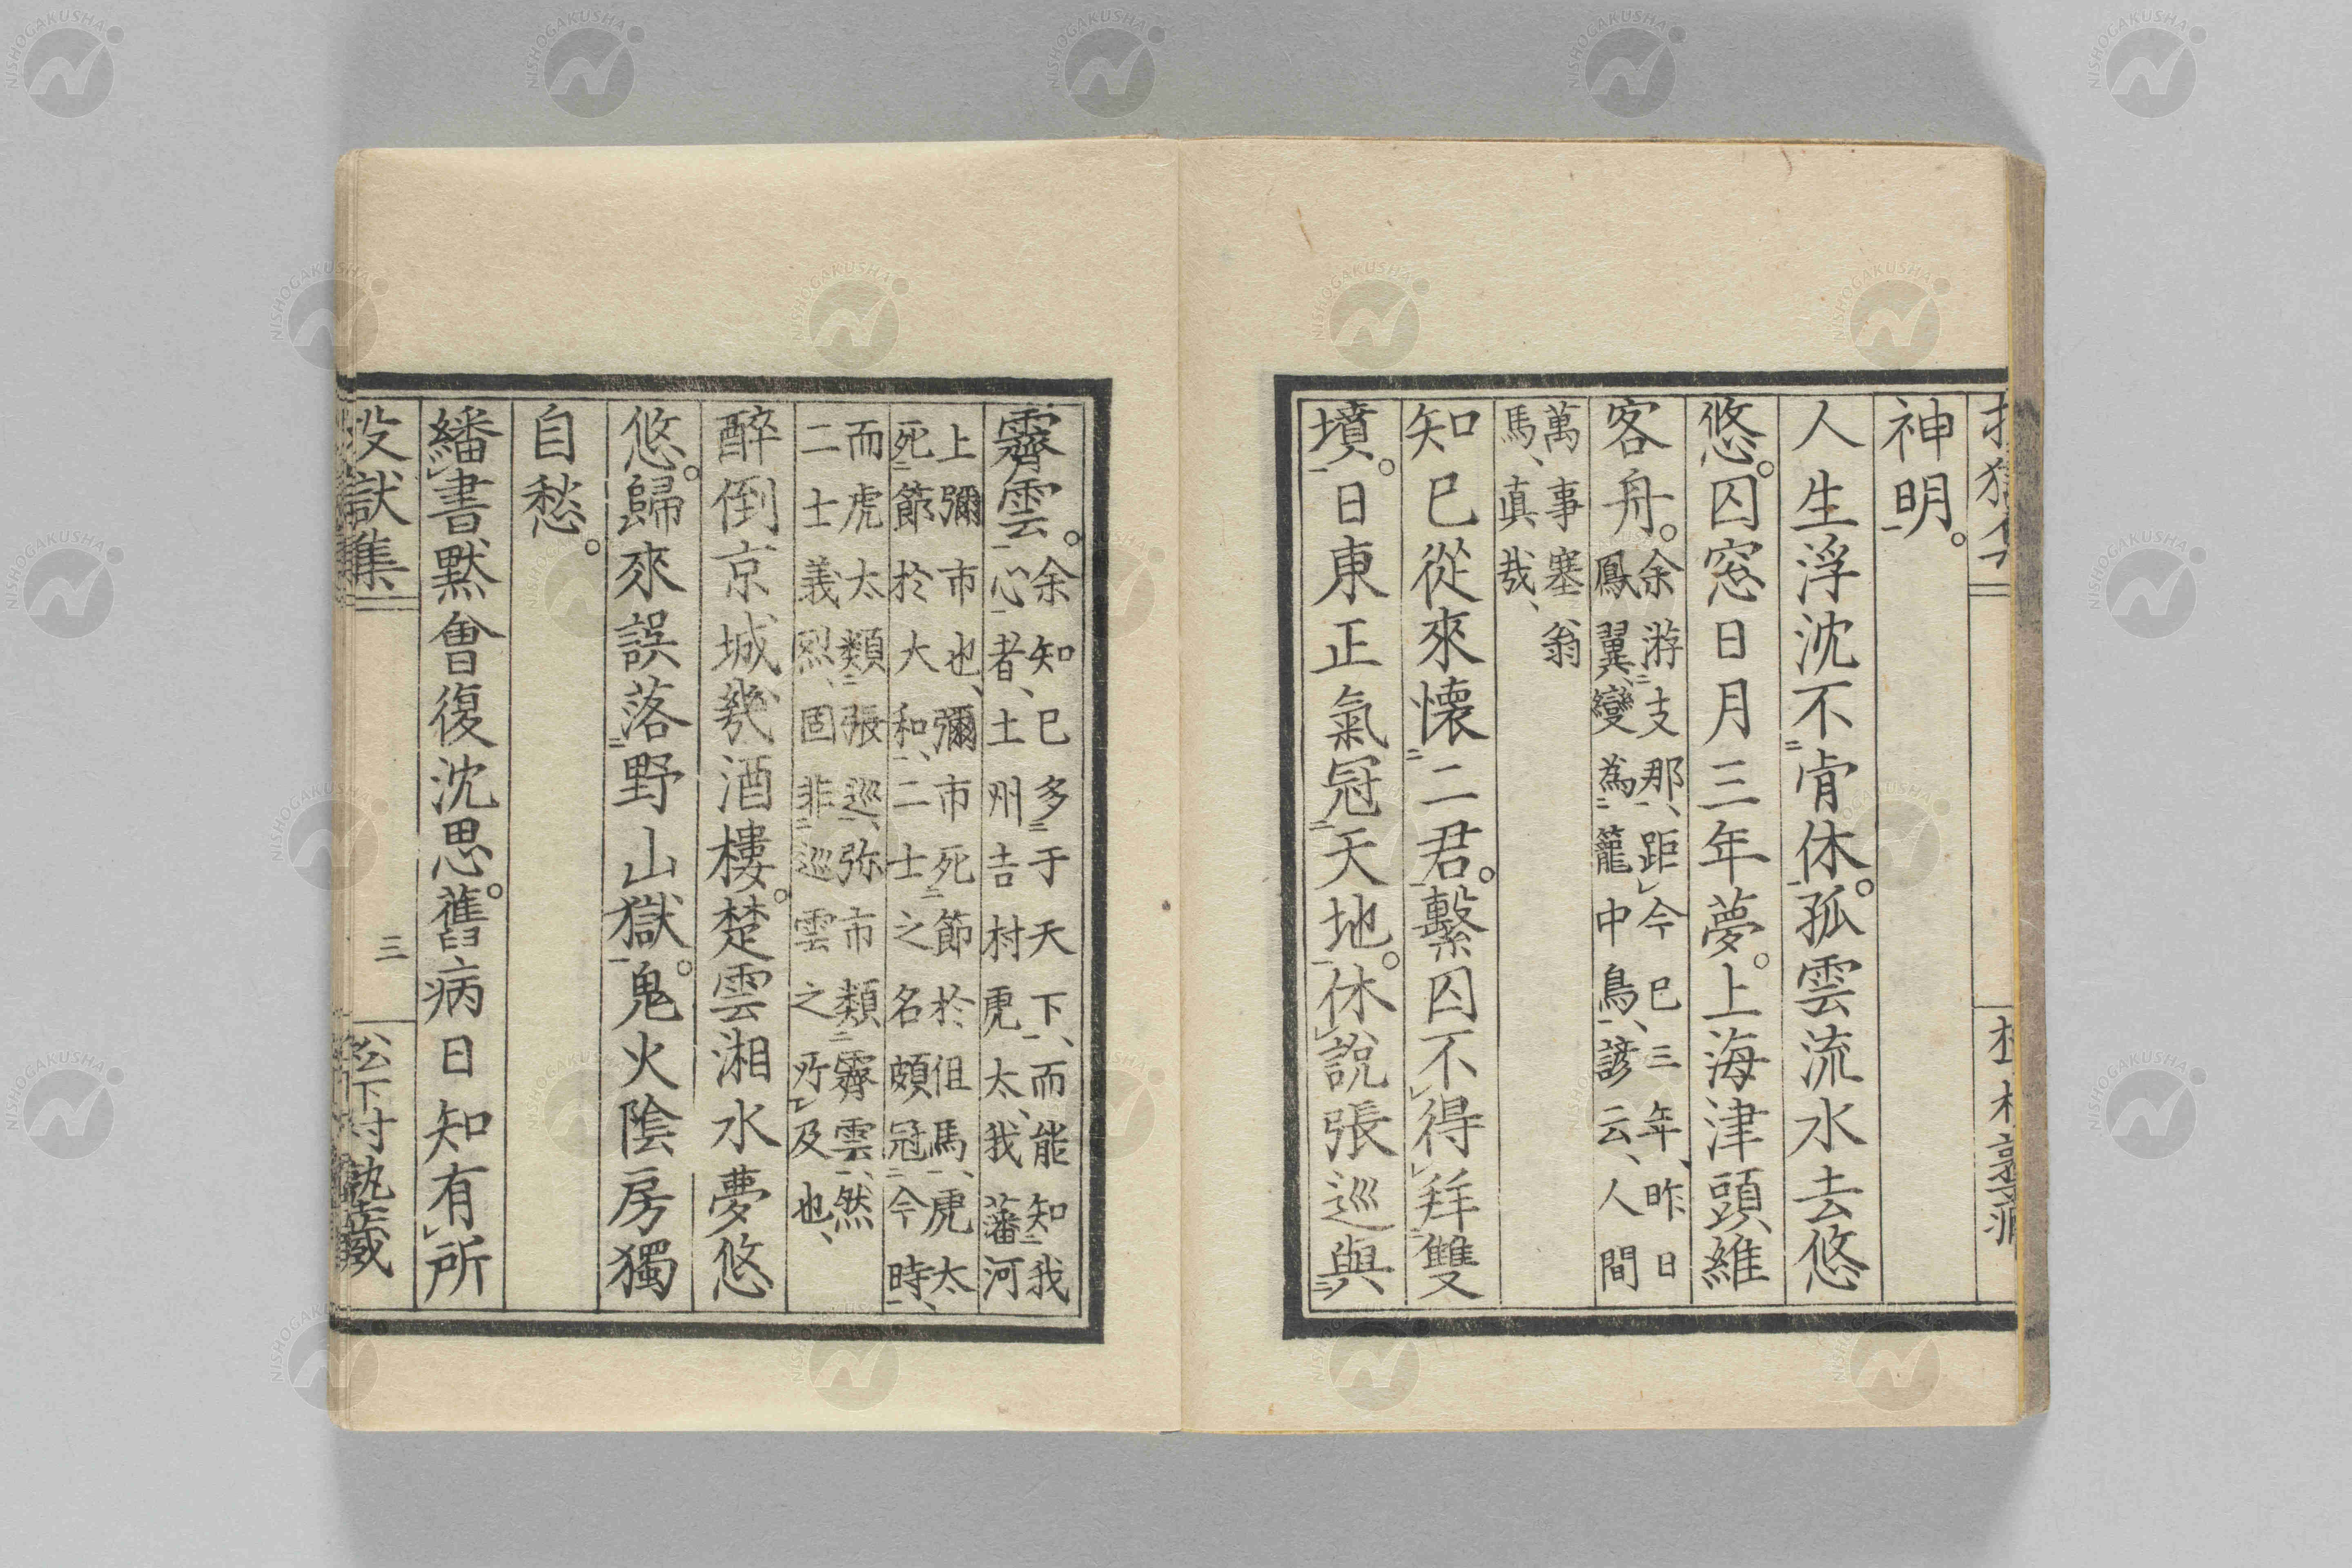 神明。
人生浮沈不肯休。孤雲流水去悠
悠。囚窓日月三年夢。上海津頭維
客舟。余游支那、距今已三年、昨日
鳳翼變為籠中鳥、諺云、人間
萬事塞翁
馬、真哉、
知已從來懷二君。繫囚不得拜雙
墳。日東正氣冠天地。休說張巡與
霽雲。余知已多于天下、而能知我
心者、土州吉村虎太、我藩河
上彌市也、彌市死節於但馬、虎太
死節於大和、二士之名頗冠今時、
而虎太類張巡、弥市類霽雲、然
二士義烈、固非巡雲之所及也、
醉倒京城幾酒樓。楚雲湘水夢悠
悠。歸來誤落野山獄。鬼火陰房獨
自愁。
繙書默會復沈思。舊病日知有所
投獄集
三
松下村塾藏
NISHOGAKUSHA